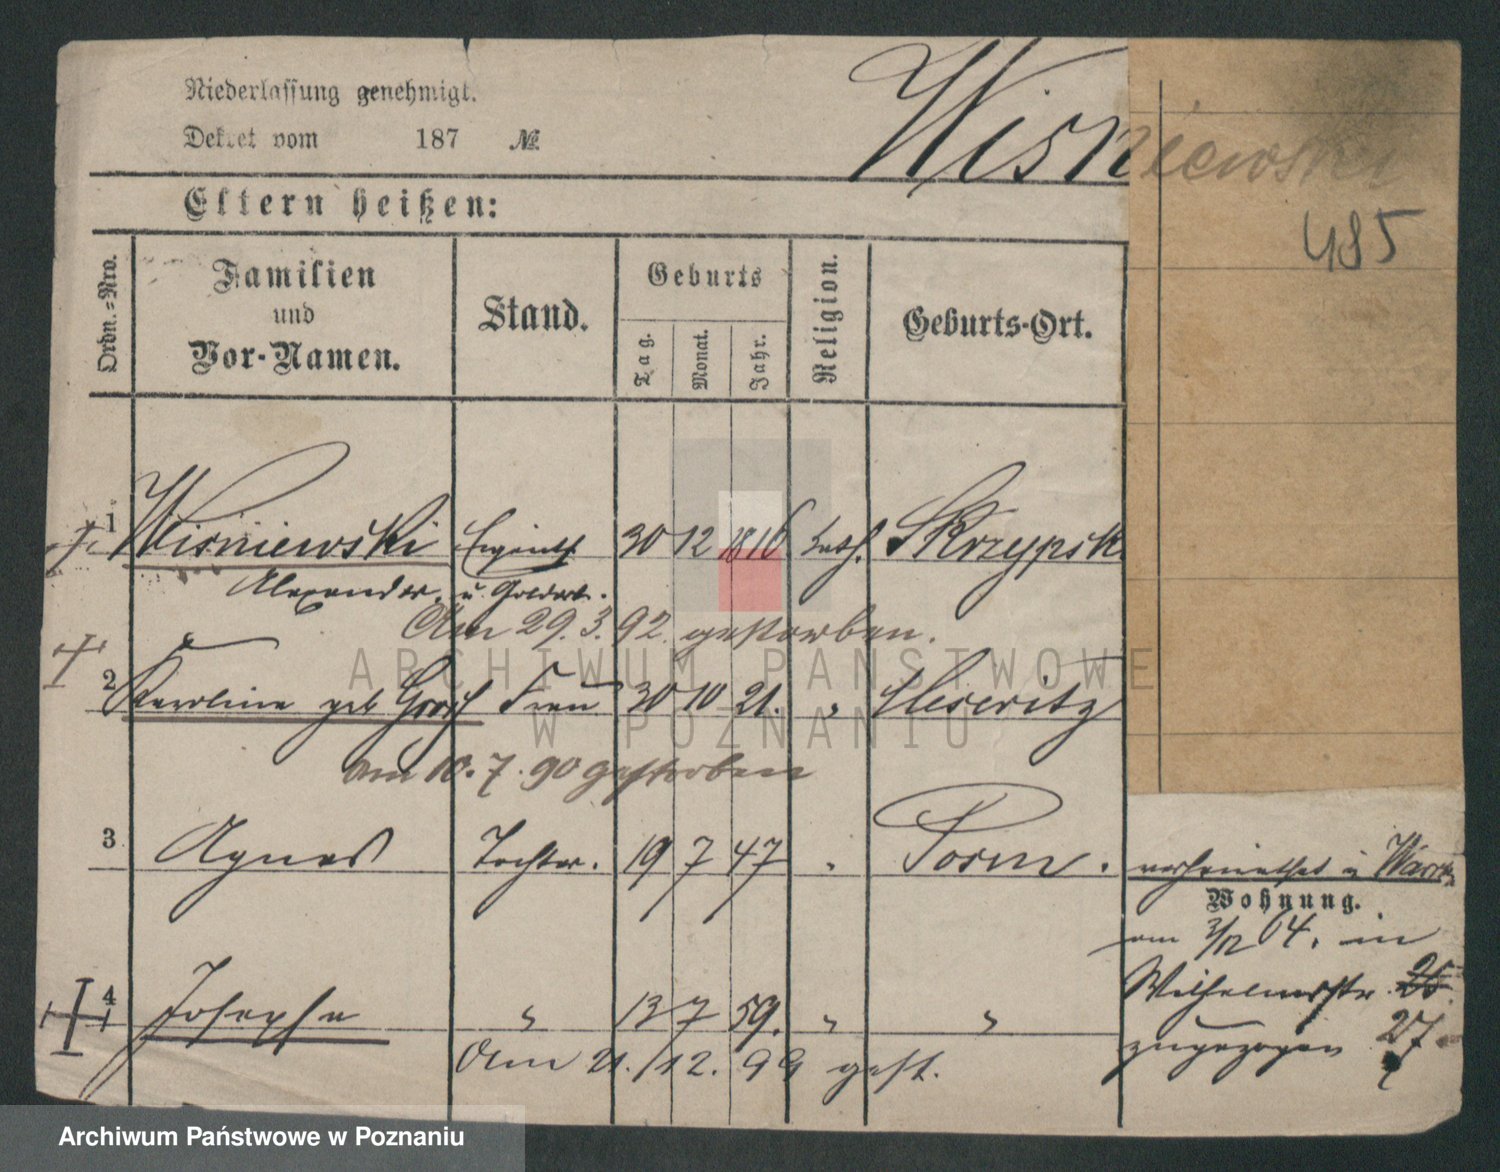 Niederlassung genehmigt.
Dekret vom 187 №
Wisniewski
485
Eltern heißen:
Ordn.-Nro.
Familien und Vor-Namen.
Stand.
Geburts
Tag.
Monat.
Jahr.
Religion.
Geburts-Ort.
1 Wisniewski 30 12 1816 kath.
Alexander. u.
Am 29. 3. 92. gestorben.
2 Karoline geb Frau 30 10 21. "
am 10. 7. 90 gestorben
3 Agnes Tochter. 19 7 47 " Posen.
verheirathet
Wohnung.
am 3/12 04. in
4 Josepha " 13 7 59. " "
Wilhelmstr. 25
zugezogen 27
Am 21./12. 99 gest.
ARCHIWUM PAŃSTWOWE
W POZNANIU
Archiwum Państwowe w Poznaniu